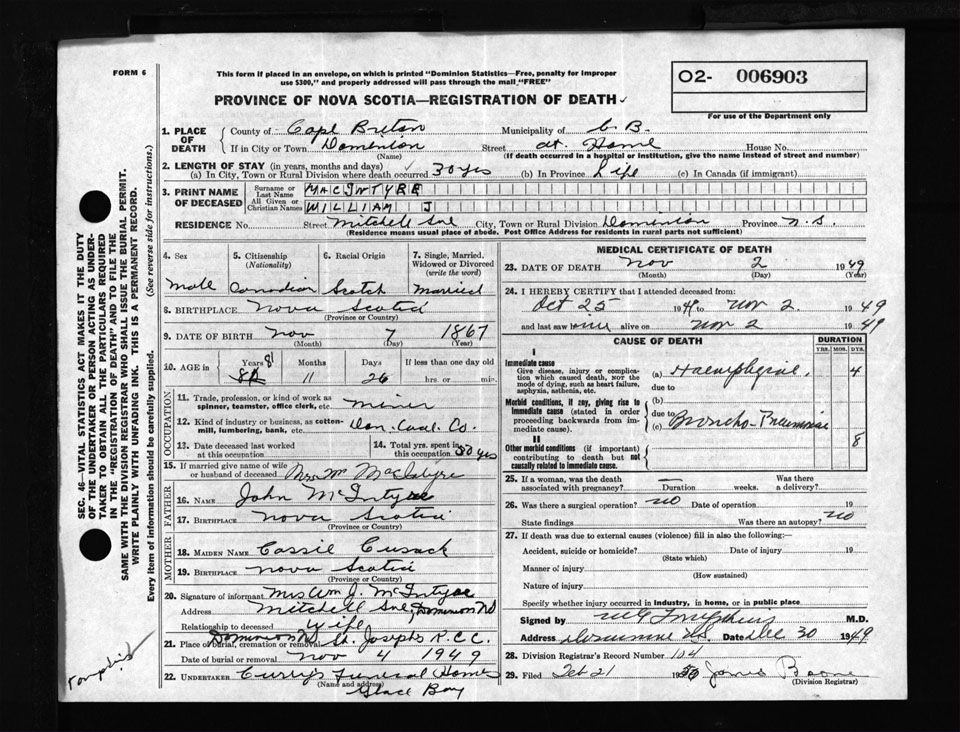 FORM 6
This form if placed in an envelope, on which is printed "Dominion Statistics—Free, penalty for improper
use $300," and properly addressed will pass through the mail "FREE"
O2- 006903
PROVINCE OF NOVA SCOTIA—REGISTRATION OF DEATH
For use of the Department only
1. PLACE OF DEATH { County of Cape Breton Municipality of C. B.
If in City or Town Dominion Street at Home House No.
(Name) (If death occurred in a hospital or institution, give the name instead of street and number)
2. LENGTH OF STAY (in years, months and days)
(a) In City, Town or Rural Division where death occurred 30 yrs (b) In Province Life (c) In Canada (if immigrant)
3. PRINT NAME OF DECEASED { Surname or Last Name MACINTYRE
All Given or Christian Names WILLIAM J
RESIDENCE No. Street Mitchell Ave City, Town or Rural Division Dominion Province N.S.
(Residence means usual place of abode. Post Office Address for residents in rural parts not sufficient)
4. Sex 5. Citizenship (Nationality) 6. Racial Origin 7. Single, Married, Widowed or Divorced (write the word)
Male Canadian Scotch Married
8. BIRTHPLACE Nova Scotia
(Province or Country)
9. DATE OF BIRTH Nov 7 1867
(Month) (Day) (Year)
10. AGE in { Years Months Days If less than one day old
81 11 26 hrs. or min.
OCCUPATION
11. Trade, profession or kind of work as
spinner, teamster, office clerk, etc. miner
12. Kind of industry or business, as cotton-
mill, lumbering, bank, etc. Dom. Coal Co.
13. Date deceased last worked at this occupation 14. Total yrs. spent in this occupation 50 yrs
15. If married give name of wife
or husband of deceased Mrs Wm MacIntyre
FATHER
16. NAME John McIntyre
17. BIRTHPLACE Nova Scotia
(Province or Country)
MOTHER
18. MAIDEN NAME Cassie Cusack
19. BIRTHPLACE Nova Scotia
(Province or Country)
20. Signature of informant Mrs Wm J. McIntyre
Address Mitchell Ave, Dominion NS
Relationship to deceased Wife
21. Place of burial, cremation or removal Dominion NS St. Josephs R.C.C.
Date of burial or removal Nov 4 1949
22. UNDERTAKER Curry's Funeral Home
(Name and address) Glace Bay
MEDICAL CERTIFICATE OF DEATH
23. DATE OF DEATH Nov 2 1949
(Month) (Day) (Year)
24. I HEREBY CERTIFY that I attended deceased from:
Oct 25 194 to Nov 2 1949
and last saw him alive on Nov 2 1949
CAUSE OF DEATH DURATION
YRS. MOS. DYS.
I
Immediate cause
Give disease, injury or complica-
tion which caused death, NOT the
mode of dying, such as heart failure,
asphyxia, asthenia, etc.
(a) 4
due to
Morbid conditions, if any, giving rise to
immediate cause (stated in order
proceeding backwards from im-
mediate cause).
(b)
due to
(c) Broncho-Pneumonia 8
II
Other morbid conditions (if important)
contributing to death but not
causally related to immediate cause.
25. If a woman, was the death
associated with pregnancy? Duration weeks. Was there
a delivery?
26. Was there a surgical operation? no Date of operation 19
State findings Was there an autopsy? no
27. If death was due to external causes (violence) fill in also the following:—
Accident, suicide or homicide? Date of injury 19
(State which)
Manner of injury
(How sustained)
Nature of injury
Specify whether injury occurred in industry, in home, or in public place
Signed by M.D.
Address Dominion NS. Date Dec 30 1949
28. Division Registrar's Record Number 104
29. Filed Feb 21 1950 James Boone
(Division Registrar)
SEC. 46—VITAL STATISTICS ACT MAKES IT THE DUTY
OF THE UNDERTAKER OR PERSON ACTING AS UNDER-
TAKER TO OBTAIN ALL THE PARTICULARS REQUIRED
IN THE "REGISTRATION OF DEATH" AND TO FILE THE
SAME WITH THE DIVISION REGISTRAR WHO SHALL ISSUE THE BURIAL PERMIT.
WRITE PLAINLY WITH UNFADING INK. THIS IS A PERMANENT RECORD.
Every item of information should be carefully supplied. (See reverse side for instructions.)